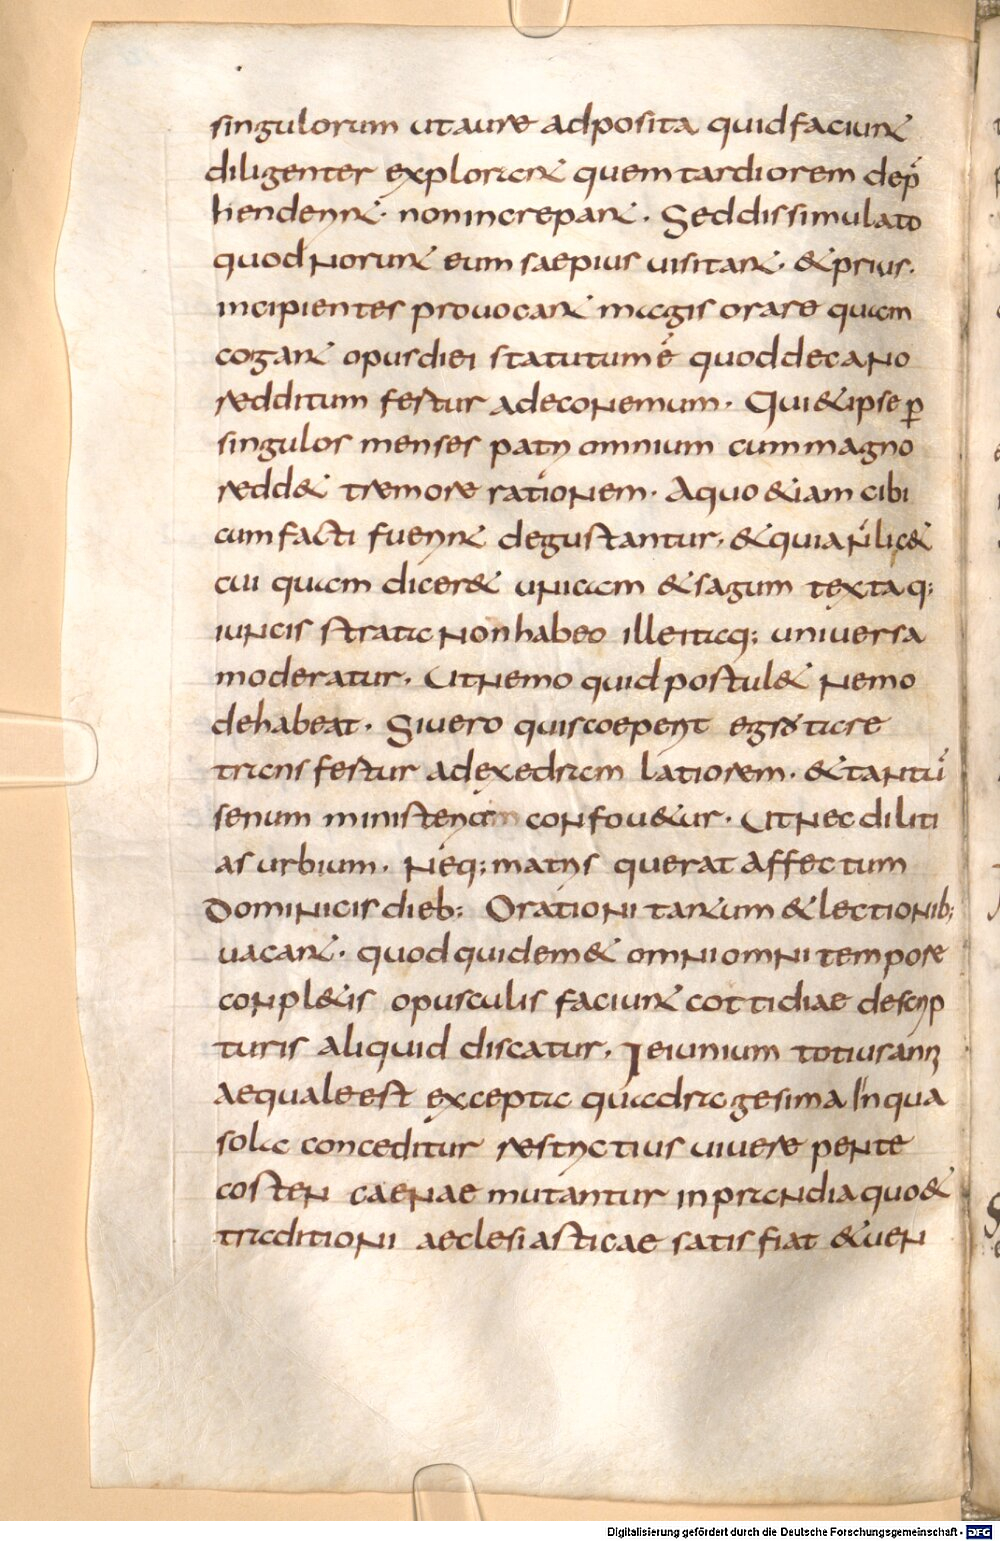 singulorum ut aure adposita quid faciunt
diligenter explorant quem tardiorem dep̃
henderint · non increpant · Sed dissimulato
quod norunt eum saepius visitant · & prius ·
incipientes provocant magis orare quam
cogant opus diei statutum ẽ quod decano
redditum fertur ad economum · Qui & ipse p̱
singulos menses patri omnium cum magno
redd& tremore rationem · A quo &iam cibi
cum facti fuerint degustantur · & quia ñ lic&
cuiquam dicere& unicam & sagum textaq;
iuncis strata non habeo ille itaq; universa
moderatur · Ut nemo quid postul& nemo
dehabeat · Si vero quis coeperit egrotare
transfertur ad exedram latiorem · & tantũ
senum ministeriam confov&ur · Ut nec diliti
as urbium · Neq; matris querat affectum
Dominicis dieb; Orationi tantum & lectionib;
vacant · quod quidem & omni omni tempore
conpl&is opusculis faciunt cottidiae de scrip
turis aliquid discatur · Ieiunium totius anni
aequale est excepta quadragesima In qua
sola conceditur restrictius vivere pente
costen caenae mutantur in prandia quo &
traditioni aeclesiasticae satis fiat & ven
Digitalisierung gefördert durch die Deutsche Forschungsgemeinschaft - DFG